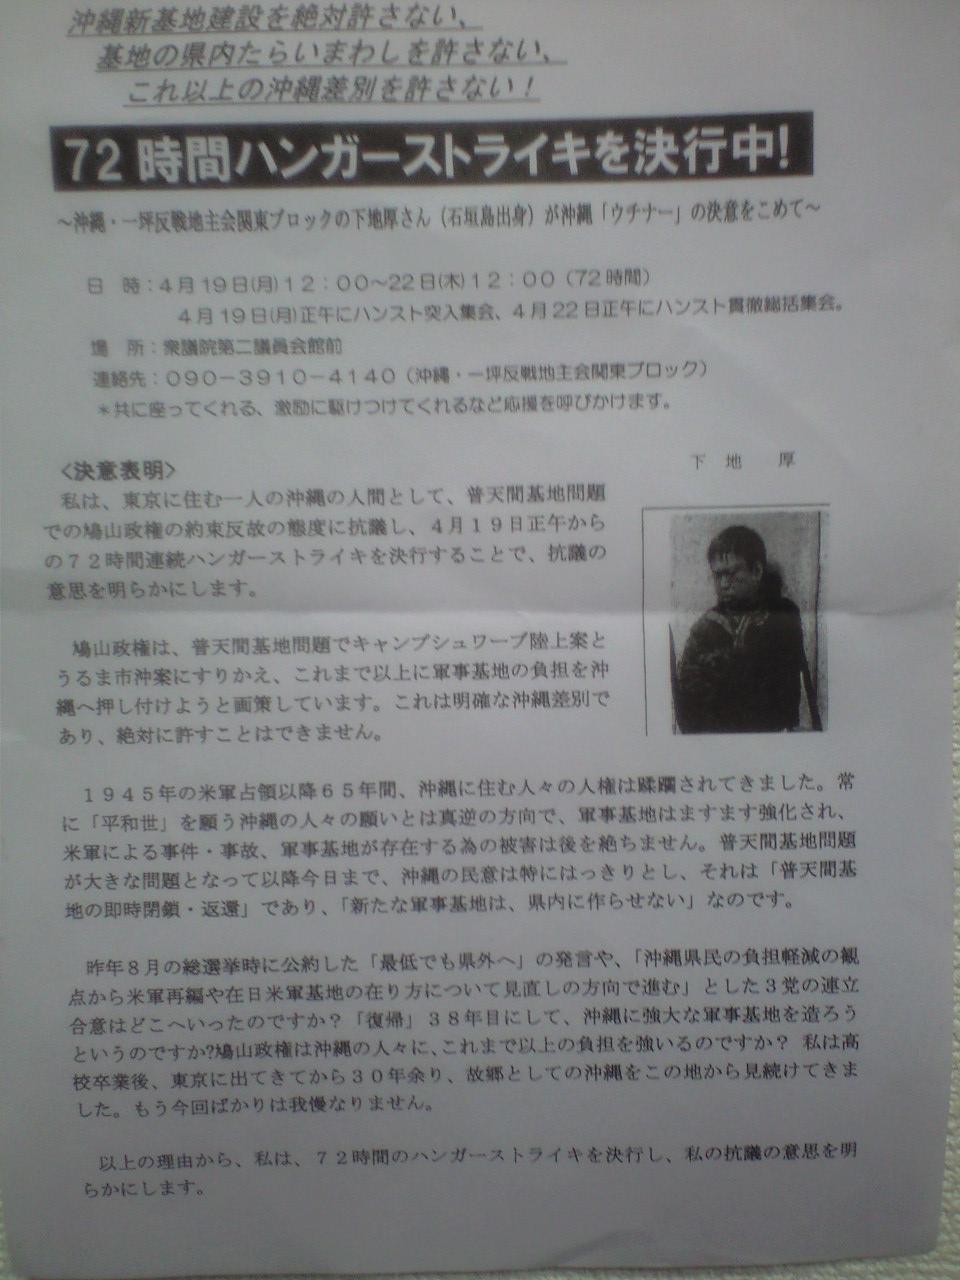 沖縄新基地建設を絶対許さない、
基地の県内たらいまわしを許さない、
これ以上の沖縄差別を許さない！
72時間ハンガーストライキを決行中!
～沖縄・一坪反戦地主会関東ブロックの下地厚さん（石垣島出身）が沖縄「ウチナー」の決意をこめて～
日　時：４月１９日(月)１２：００～２２日(木)１２：００（72時間）
４月１９日(月)正午にハンスト突入集会、４月２２日正午にハンスト貫徹総括集会。
場　所：衆議院第二議員会館前
連絡先：０９０－３９１０－４１４０（沖縄・一坪反戦地主会関東ブロック）
＊共に座ってくれる、激励に駆けつけてくれるなど応援を呼びかけます。
下　地　　厚
＜決意表明＞
私は、東京に住む一人の沖縄の人間として、普天間基地問題
での鳩山政権の約束反故の態度に抗議し、４月１９日正午から
の７２時間連続ハンガーストライキを決行することで、抗議の
意思を明らかにします。
鳩山政権は、普天間基地問題でキャンプシュワーブ陸上案と
うるま市沖案にすりかえ、これまで以上に軍事基地の負担を沖
縄へ押し付けようと画策しています。これは明確な沖縄差別で
あり、絶対に許すことはできません。
１９４５年の米軍占領以降６５年間、沖縄に住む人々の人権は蹂躙されてきました。常
に「平和世」を願う沖縄の人々の願いとは真逆の方向で、軍事基地はますます強化され、
米軍による事件・事故、軍事基地が存在する為の被害は後を絶ちません。普天間基地問題
が大きな問題となって以降今日まで、沖縄の民意は特にはっきりとし、それは「普天間基
地の即時閉鎖・返還」であり、「新たな軍事基地は、県内に作らせない」なのです。
昨年８月の総選挙時に公約した「最低でも県外へ」の発言や、「沖縄県民の負担軽減の観
点から米軍再編や在日米軍基地の在り方について見直しの方向で進む」とした３党の連立
合意はどこへいったのですか？「復帰」３８年目にして、沖縄に強大な軍事基地を造ろう
というのですか?鳩山政権は沖縄の人々に、これまで以上の負担を強いるのですか？ 私は高
校卒業後、東京に出てきてから３０年余り、故郷としての沖縄をこの地から見続けてきま
した。もう今回ばかりは我慢なりません。
以上の理由から、私は、７２時間のハンガーストライキを決行し、私の抗議の意思を明
らかにします。